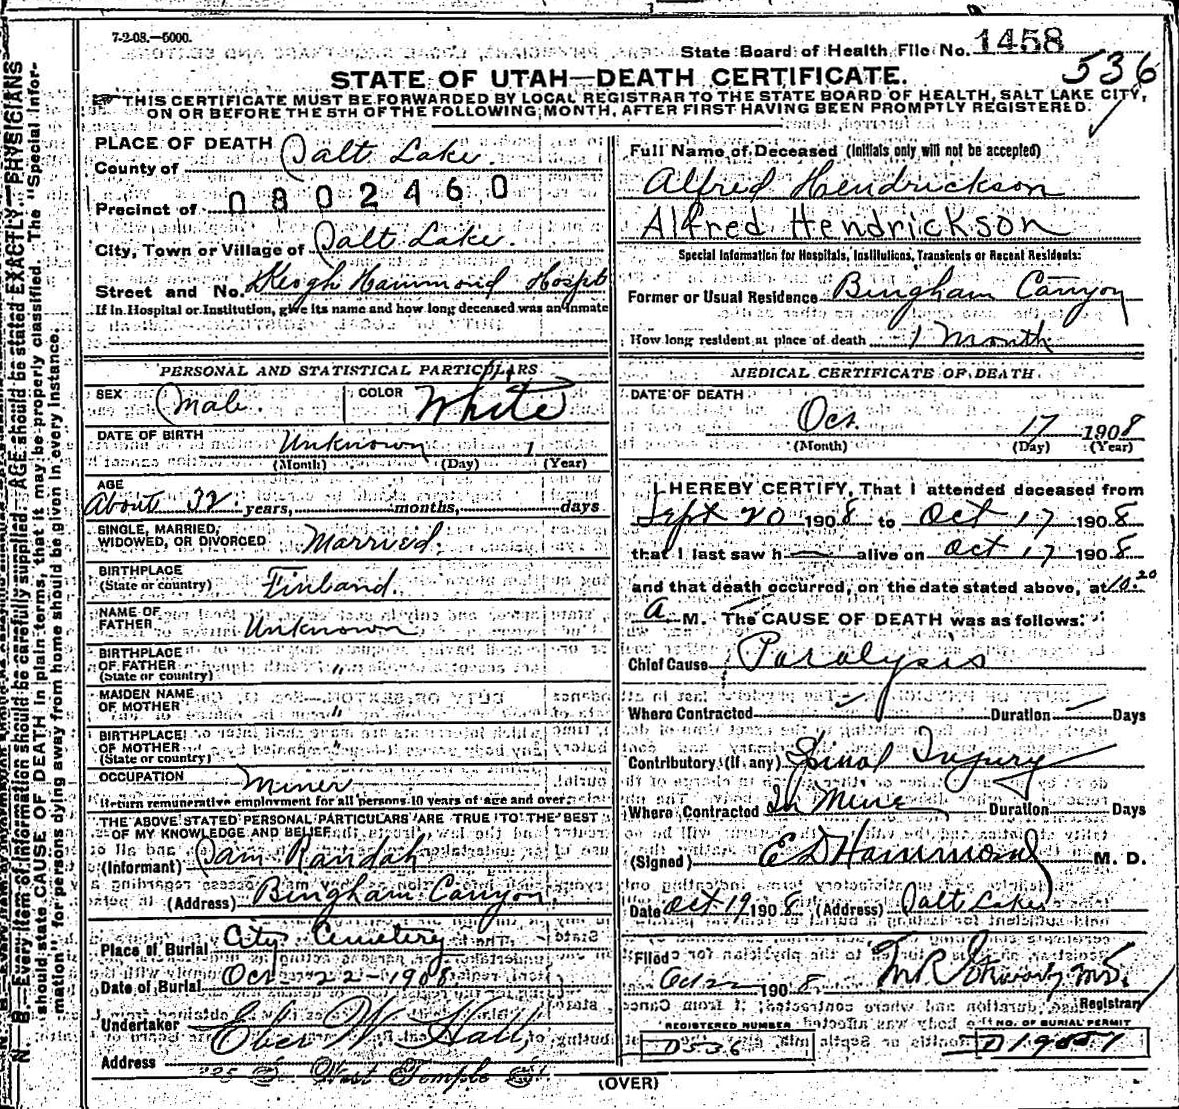 7-2-08.—5000.
State Board of Health File No. 1458
536
STATE OF UTAH—DEATH CERTIFICATE.
THIS CERTIFICATE MUST BE FORWARDED BY LOCAL REGISTRAR TO THE STATE BOARD OF HEALTH, SALT LAKE CITY,
ON OR BEFORE THE 5TH OF THE FOLLOWING MONTH, AFTER FIRST HAVING BEEN PROMPTLY REGISTERED.
PLACE OF DEATH
County of Salt Lake.
Precinct of 0802460
City, Town or Village of Salt Lake.
Street and No. Keogh Hammond Hospt
If in Hospital or Institution, give its name and how long deceased was an inmate
PERSONAL AND STATISTICAL PARTICULARS
SEX Male. COLOR White
DATE OF BIRTH Unknown 1
(Month) (Day) (Year)
AGE
About 32 years, months, days
SINGLE, MARRIED,
WIDOWED, OR DIVORCED Married.
BIRTHPLACE
(State or country) Finland.
NAME OF
FATHER Unknown
BIRTHPLACE
OF FATHER "
(State or country)
MAIDEN NAME
OF MOTHER "
BIRTHPLACE
OF MOTHER "
(State or country)
OCCUPATION Miner
Return remunerative employment for all persons 10 years of age and over.
THE ABOVE STATED PERSONAL PARTICULARS ARE TRUE TO THE BEST
OF MY KNOWLEDGE AND BELIEF
(Informant) Sam Randah
(Address) Bingham Canyon.
Place of Burial City Cemetery
Date of Burial Oct 22-1908
Undertaker Eber W. Hall,
Address 225 S. West Temple St.
Full Name of Deceased (Initials only will not be accepted)
Alfred Hendrickson
Alfred Hendrickson
Special Information for Hospitals, Institutions, Transients or Recent Residents:
Former or Usual Residence Bingham Canyon
How long resident at place of death 1 Month
MEDICAL CERTIFICATE OF DEATH
DATE OF DEATH
Oct. 17 1908
(Month) (Day) (Year)
I HEREBY CERTIFY, That I attended deceased from
Sept 20 1908 to Oct 17 1908
that I last saw h— alive on Oct 17 1908
and that death occurred, on the date stated above, at 10.20
A M. The CAUSE OF DEATH was as follows:
Chief Cause Paralysis
Where Contracted Duration Days
Contributory (If any) Spinal Injury
Where Contracted In Mine Duration Days
(Signed) E D Hammond M. D.
Date Oct 19 1908 (Address) Salt Lake
Filed
Oct 22 1908 M.D.
Registrar
REGISTERED NUMBER NO. OF BURIAL PERMIT
D536
(OVER)
N. B.—Every item of information should be carefully supplied. AGE should be stated EXACTLY. PHYSICIANS
should state CAUSE OF DEATH in plain terms, that it may be properly classified. The "Special Infor-
mation" for persons dying away from home should be given in every instance.